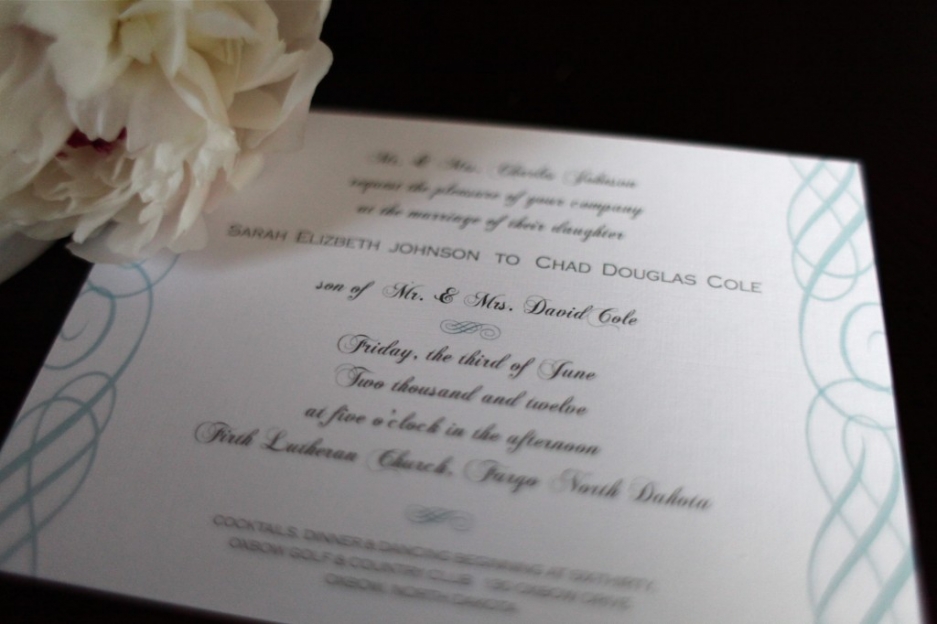 Mr. & Mrs. Charles Johnson
request the pleasure of your company
at the marriage of their daughter
SARAH ELIZBETH JOHNSON TO CHAD DOUGLAS COLE
son of Mr. & Mrs. David Cole
Friday, the third of June
Two thousand and twelve
at five o'clock in the afternoon
Firth Lutheran Church, Fargo North Dakota
COCKTAILS, DINNER & DANCING BEGINNING AT SIX THIRTY
OXBOW GOLF & COUNTRY CLUB OXBOW DRIVE
OXBOW, NORTH DAKOTA